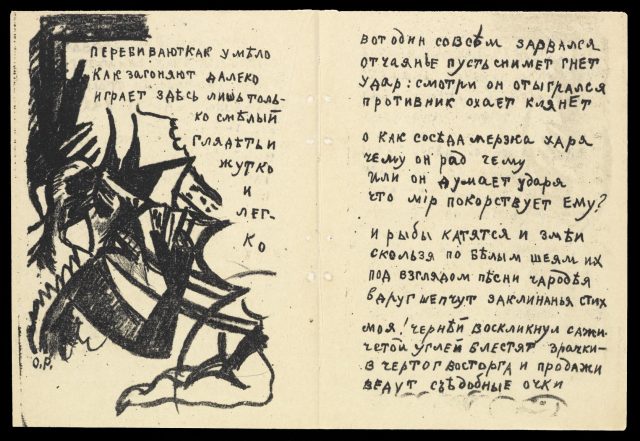 ПЕРЕБИВАЮТ КАК УМѢЛО
КАК ЗАГОНЯЮТ ДАЛЕКО
ИГРАЕТ ЗДѢСЬ ЛИШЬ ТОЛЬ-
КО СМѢЛЫЙ
ГЛЯДѢТЬ И
ЖУТКО
И
ЛЕГ-
КО
О.Р.
ВОТ ОДИН СОВСѢМ ЗАРВАЛСЯ
ОТЧАЯНЬЕ ПУСТЬ СНИМЕТ ГНЕТ
УДАР: СМОТРИ ОН ОТЫГРАЛСЯ
ПРОТИВНИК ОХАЕТ КЛЯНЕТ
О КАК СОСѢДА МЕРЗКА ХАРЯ
ЧЕМУ ОН РАД ЧЕМУ
ИЛИ ОН ДУМАЕТ УДАРЯ
ЧТО МІР ПОКОРСТВУЕТ ЕМУ?
И РЫБЫ КАТЯТСЯ И ЗМѢИ
СКОЛЬЗЯ ПО БѢЛЫМ ШЕЯМ ИХ
ПОД ВЗГЛЯДОМ ПѢСНИ ЧАРОДѢЯ
ВДРУГ ШЕПЧУТ ЗАКЛИНАНЬЯ СТИХ
МОЯ! ЧЕРНѢЙ ВОСКЛИКНУЛ САЖИ
ЧЕТОЙ УГЛЕЙ БЛЕСТЯТ ЗРАЧКИ–
В ЧЕРТОГ ВОСТОРГА И ПРОДАЖИ
ВЕДУТ СЪѢДОБНЫЕ ОЧКИ